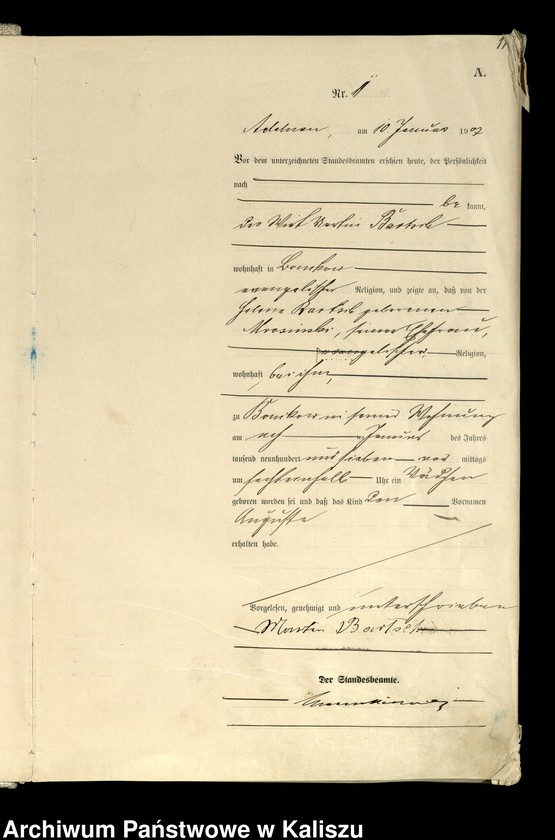 11
A.
Nr. 11
Adelnau, am 10 Januar 1907
Vor dem unterzeichneten Standesbeamten erschien heute, der Persönlichkeit
nach
be kannt,
der Wirt Martin Bartsch
wohnhaft in Bonikow
evangelischer Religion, und zeigte an, daß von der
Helene Bartsch geborenen
Mrosinski, seiner Ehefrau,
evangelischer Religion,
wohnhaft bei ihm,
zu Bonikow in seiner Wohnung
am Januar des Jahres
tausend neunhundert und sieben vor mittags
um Uhr ein Mädchen
geboren worden sei und daß das Kind den Vornamen
Auguste
erhalten habe.
Vorgelesen, genehmigt und unterschrieben
Martin Bartsch
Der Standesbeamte.
Archiwum Państwowe w Kaliszu